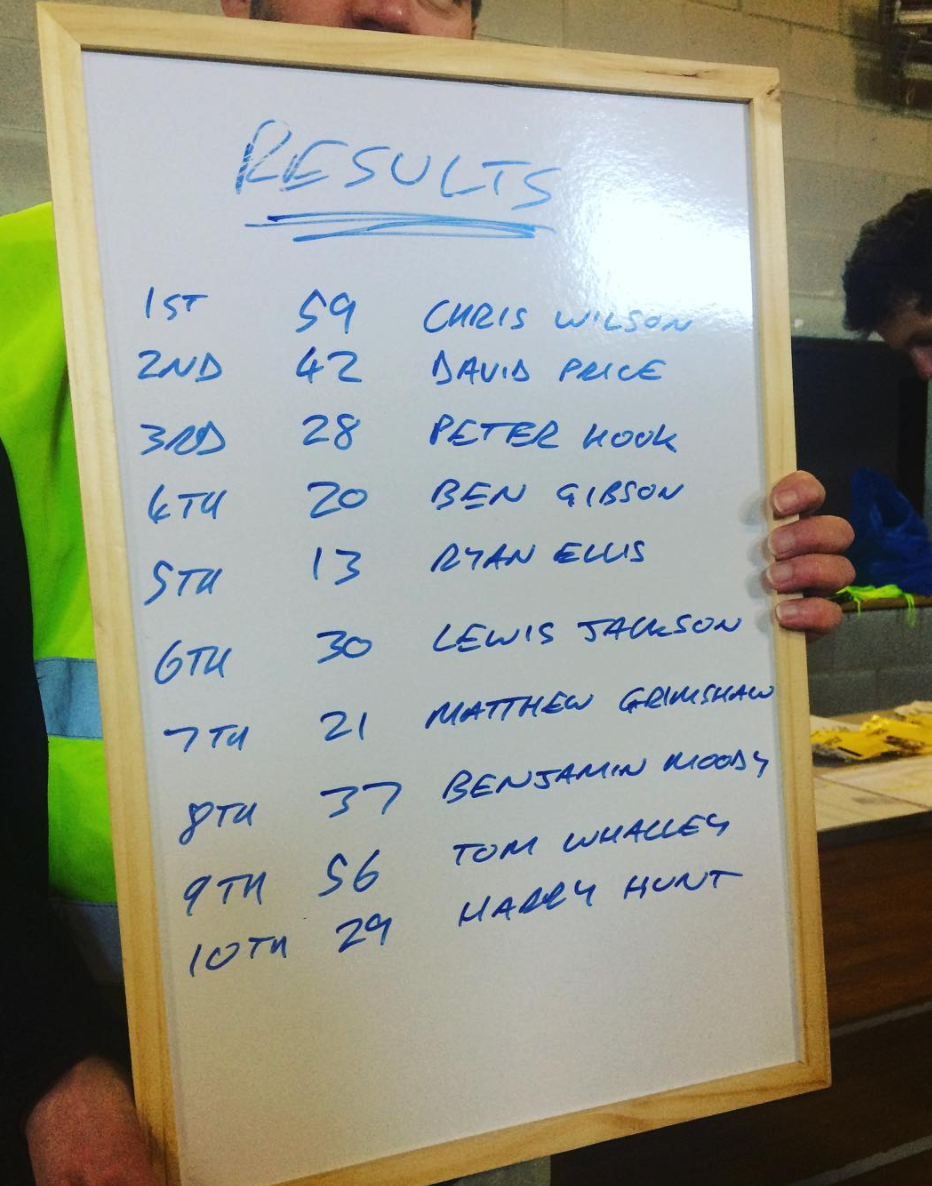 RESULTS
1ST 59 CHRIS WILSON
2ND 42 DAVID PRICE
3RD 28 PETER HOOK
4TH 20 BEN GIBSON
5TH 13 RYAN ELLIS
6TH 30 LEWIS JACKSON
7TH 21 MATTHEW GRIMSHAW
8TH 37 BENJAMIN MOODY
9TH 56 TOM WHALLEY
10TH 29 HARRY HUNT